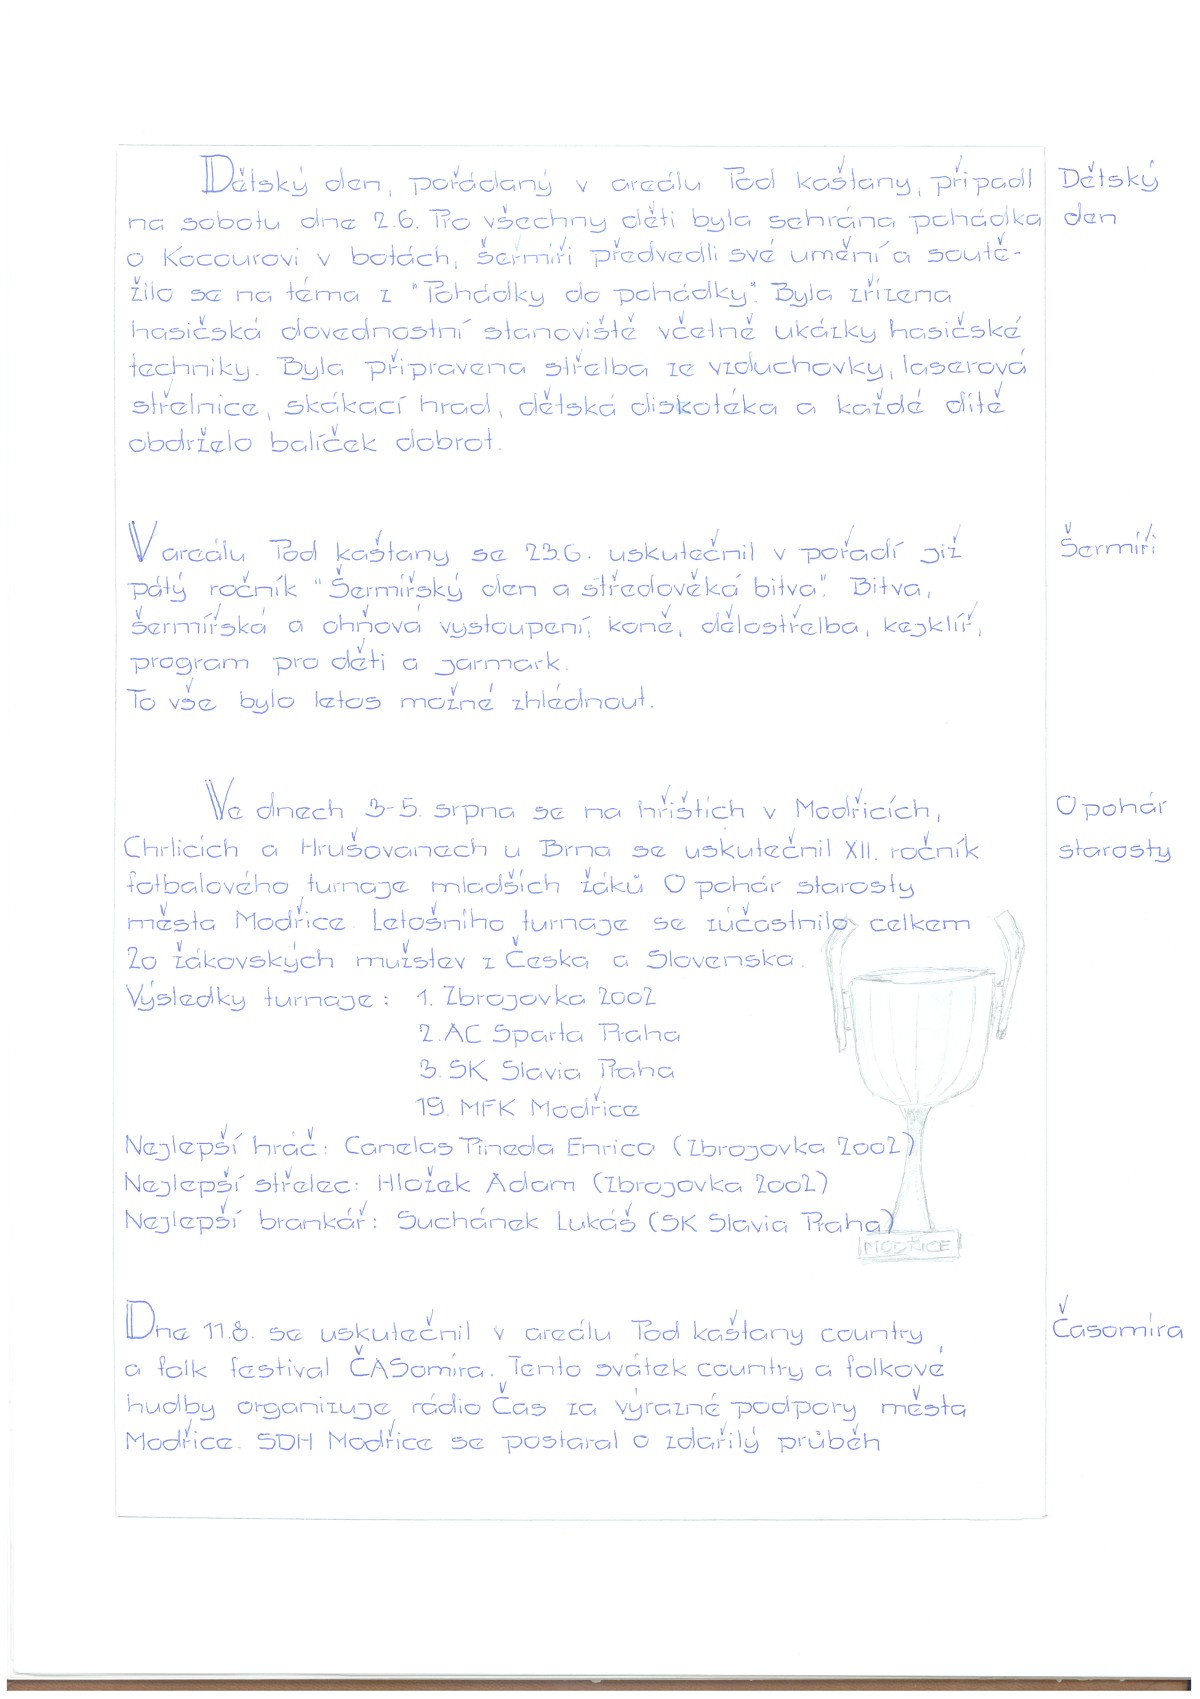 Dětský den, pořádaný v areálu Pod kaštany, připadl
Dětský
na sobotu dne 2.6. Pro všechny děti byla sehrána pohádka
den
o Kocourovi v botách, šermíři předvedli své umění a soutě-
žilo se na téma z "Pohádky do pohádky". Byla zřízena
hasičská dovednostní stanoviště včetně ukázky hasičské
techniky. Byla připravena střelba ze vzduchovky, laserová
střelnice, skákací hrad, dětská diskotéka a každé dítě
obdrželo balíček dobrot.
V areálu Pod kaštany se 23.6. uskutečnil v pořadí již
Šermíři
pátý ročník "Šermířský den a středověká bitva". Bitva,
šermířská a ohňová vystoupení, koně, dělostřelba, kejklíř,
program pro děti a jarmark.
To vše bylo letos možné zhlédnout.
Ve dnech 3-5. srpna se na hřištích v Modřicích,
O pohár
Chrlicích a Hrušovanech u Brna se uskutečnil XII. ročník
starosty
fotbalového turnaje mladších žáků O pohár starosty
města Modřice. Letošního turnaje se zúčastnilo celkem
20 žákovských mužstev z Česka a Slovenska.
Výsledky turnaje: 1. Zbrojovka 2002
2. AC Sparta Praha
3. SK Slavia Praha
19. MFK Modřice
Nejlepší hráč: Canelas Pineda Enrico (Zbrojovka 2002)
Nejlepší střelec: Hložek Adam (Zbrojovka 2002)
Nejlepší brankář: Suchánek Lukáš (SK Slavia Praha)
MODŘICE
Dne 11.8. se uskutečnil v areálu Pod kaštany country
Časomíra
a folk festival ČASomíra. Tento svátek country a folkové
hudby organizuje rádio Čas za výrazné podpory města
Modřice. SDH Modřice se postaral o zdařilý průběh